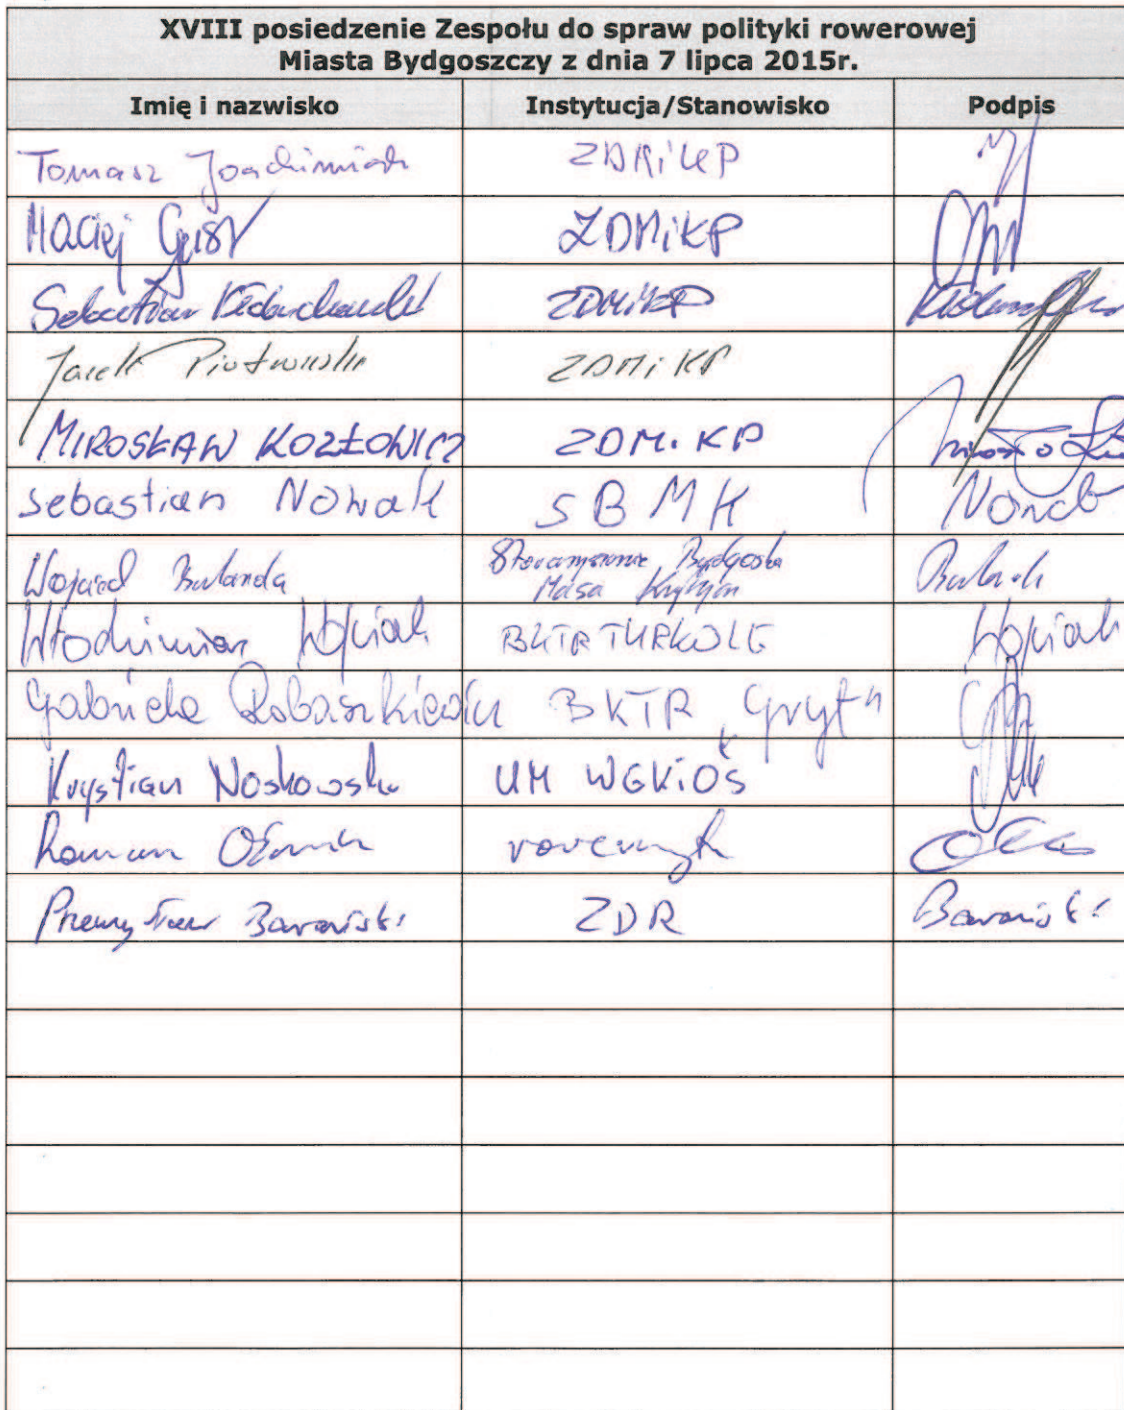 XVIII posiedzenie Zespołu do spraw polityki rowerowej
Miasta Bydgoszczy z dnia 7 lipca 2015r.
Imię i nazwisko Instytucja/Stanowisko Podpis
Tomasz Joachimiak ZDMiKP
Maciej Gust ZDMiKP
Sebastian ZDMiKP
Jacek Piotrowski ZDMiKP
MIROSŁAW KOZŁOWICZ ZDMiKP
Sebastian Nowak SBMK Nowak
Wojciech Bulanda Stowarzyszenie Bydgoska
Masa Krytyczna
Włodzimierz Wojciak BKTR TURKOLE Wojciak
Gabriela Robaszkiewicz BKTR "Gryf"
Krystian Noskowski UM WGKiOŚ
Roman
Przemysław Barański ZDR Barański